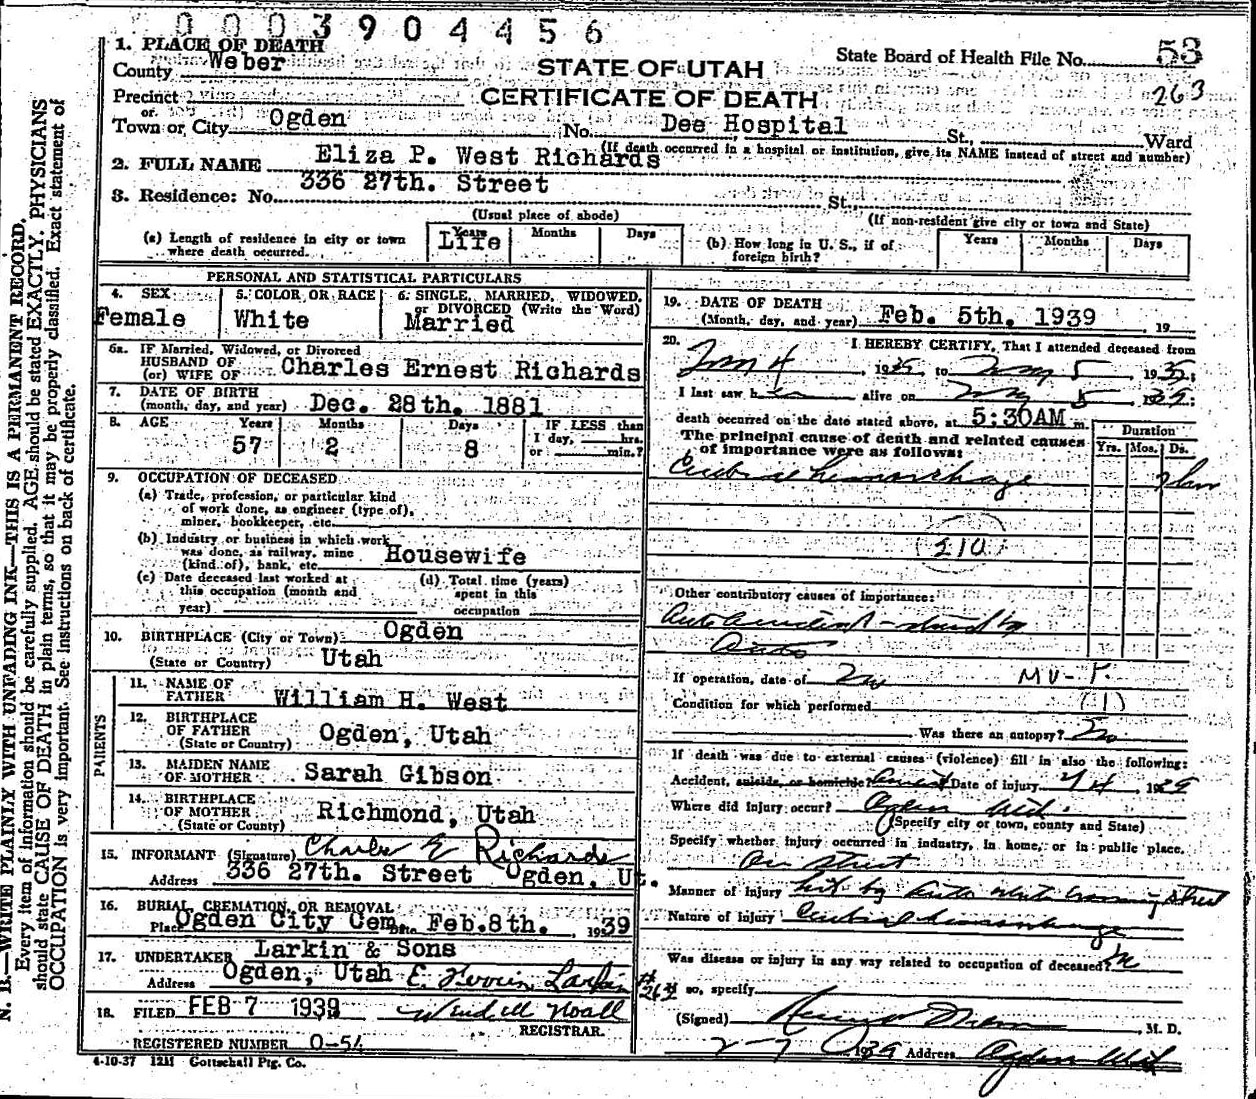 000390445 6
1. PLACE OF DEATH
County Weber
STATE OF UTAH
State Board of Health File No. 53
263
Precinct
CERTIFICATE OF DEATH
or
Town or City Ogden No. Dee Hospital St., Ward
(If death occurred in a hospital or institution, give its NAME instead of street and number)
2. FULL NAME Eliza P. West Richards
3. Residence: No. 336 27th. Street St.
(Usual place of abode) (If non-resident give city or town and State)
(a) Length of residence in city or town where death occurred. Years Life Months Days
(b) How long in U. S., if of foreign birth? Years Months Days
PERSONAL AND STATISTICAL PARTICULARS
4. SEX Female
5. COLOR OR RACE White
6. SINGLE, MARRIED, WIDOWED, or DIVORCED (Write the Word) Married
6a. IF Married, Widowed, or Divorced
HUSBAND OF
(or) WIFE OF Charles Ernest Richards
7. DATE OF BIRTH
(month, day, and year) Dec. 28th. 1881
8. AGE Years 57 Months 2 Days 8 IF LESS than 1 day, hrs. or min.?
9. OCCUPATION OF DECEASED
(a) Trade, profession, or particular kind
of work done, as engineer (type of),
miner, bookkeeper, etc.
(b) Industry or business in which work
was done, as railway, mine
(kind of), bank, etc. Housewife
(c) Date deceased last worked at
this occupation (month and
year)
(d) Total time (years)
spent in this
occupation
10. BIRTHPLACE (City or Town) Ogden
(State or Country) Utah
PARENTS
11. NAME OF
FATHER William H. West
12. BIRTHPLACE
OF FATHER Ogden, Utah
(State or Country)
13. MAIDEN NAME
OF MOTHER Sarah Gibson
14. BIRTHPLACE
OF MOTHER Richmond, Utah
(State or County)
15. INFORMANT (Signature) Charles E Richards
Address 336 27th. Street Ogden, Ut.
16. BURIAL, CREMATION, OR REMOVAL
Place Ogden City Cem. Date Feb.8th. , 1939
17. UNDERTAKER Larkin & Sons
Address Ogden, Utah E. Larkin
18. FILED FEB 7 1939 Wendell Noall
REGISTRAR.
REGISTERED NUMBER O-54
4-10-37 12M Gottschall Ptg. Co.
19. DATE OF DEATH
(Month, day, and year) Feb. 5th. 1939 , 19
20. I HEREBY CERTIFY, That I attended deceased from
4 , 1939, to 5 , 1939;
I last saw h alive on 5 1939;
death occurred on the date stated above, at 5:30AM m.
The principal cause of death and related causes
of importance were as follows:
Duration
Yrs. Mos. Ds.
hemorrhage
210
Other contributory causes of importance:
Auto accident - struck by
Auto
If operation, date of No MV-T.
Condition for which performed (1)
Was there an autopsy? No
If death was due to external causes (violence) fill in also the following:
Accident, suicide, or homicide? Accident Date of injury 2/4 , 1939
Where did injury occur? Ogden Utah.
(Specify city or town, county and State)
Specify whether injury occurred in industry, in home, or in public place.
On street
Manner of injury hit by auto while crossing street
Nature of injury Cerebral hemorrhage
Was disease or injury in any way related to occupation of deceased? No
If so, specify
(Signed) , M. D.
2-7 1939 Address Ogden Utah
N. B.—WRITE PLAINLY WITH UNFADING INK—THIS IS A PERMANENT RECORD.
Every item of information should be carefully supplied. AGE should be stated EXACTLY. PHYSICIANS
should state CAUSE OF DEATH in plain terms, so that it may be properly classified. Exact statement of
OCCUPATION is very important. See instructions on back of certificate.